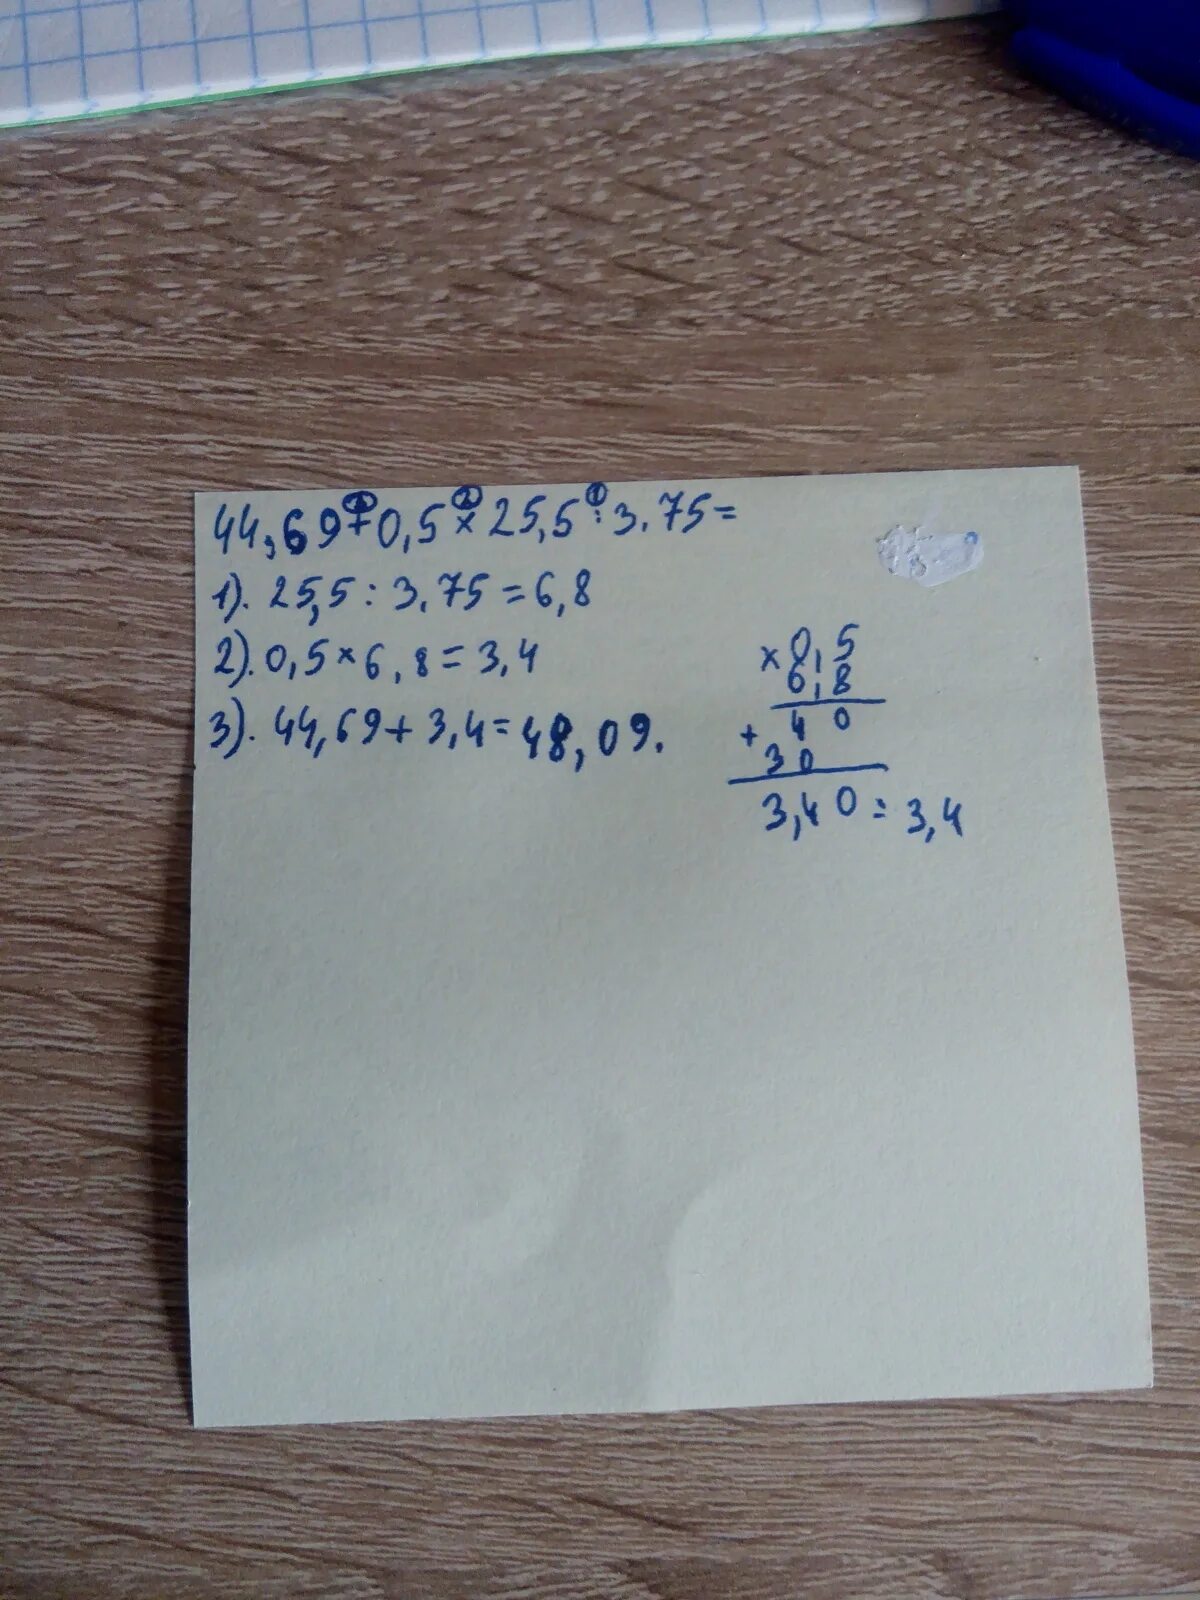 44,69+0,5×25,5:3.75=
1). 25,5:3.75=6,8
2). 0,5×6,8=3,4
3). 44,69+3,4=48,09.
× 0,5
6,8
+ 40
30
3,40=3,4